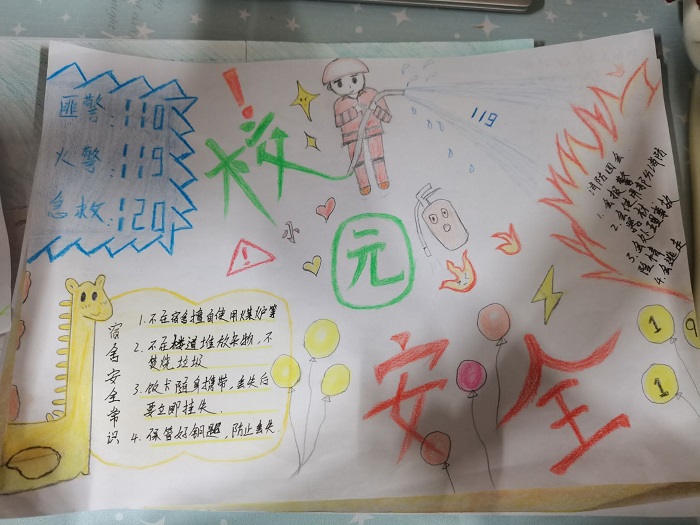 匪警:110
火警:119
急救:120
!
校
119
小
!
元
安全
消防四会
1.会报警
2.会使用部分消防
器材
3.会处理事故
险情
4.会逃生
宿舍安全常识
1.不在宿舍擅自使用煤炉等
2.不在楼道堆放杂物，不
焚烧垃圾
3.饭卡随身携带，丢失后
要立即挂失.
4.保管好钥匙，防止丢失
1
1
9